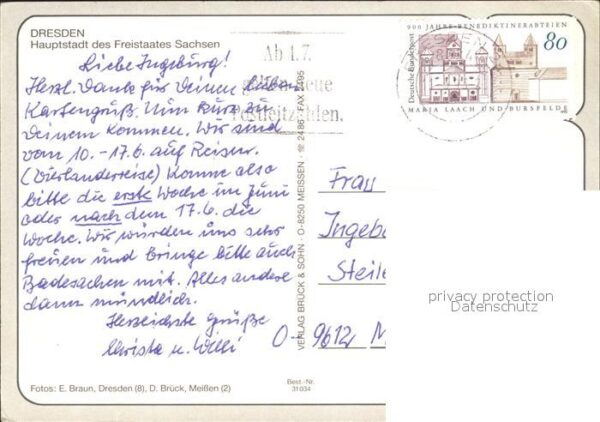 DRESDEN
Hauptstadt des Freistaates Sachsen
Liebe Ingeburg!
Herzl. Dank für Deinen lieben
Kartengruß. Nun kurz zu
Deinem Kommen. Wir sind
vom 10.-17.6. auf Reisen.
(Vierlanderreise) Komme also
bitte die erste Woche im Juni
oder nach dem 17.6. die
Woche. Wir würden uns sehr
freuen und bringe bitte auch
Badesachen mit. Alles andere
dann mündlich.
Herzlichste Grüße
Christa u. Willi
Fotos: E. Braun, Dresden (8), D. Brück, Meißen (2)
Best.-Nr.
31 034
VERLAG BRÜCK & SOHN · O-8250 MEISSEN · ☎ 2486 · FAX 2495
Ab 1.7.
neue
Postleitzahlen.
900 JAHRE BENEDIKTINERABTEIEN
80
Deutsche Bundespost
MARIA LAACH UND BURSFELDE
Frau
Ingebu
Steile
O-9612 M
privacy protection
Datenschutz